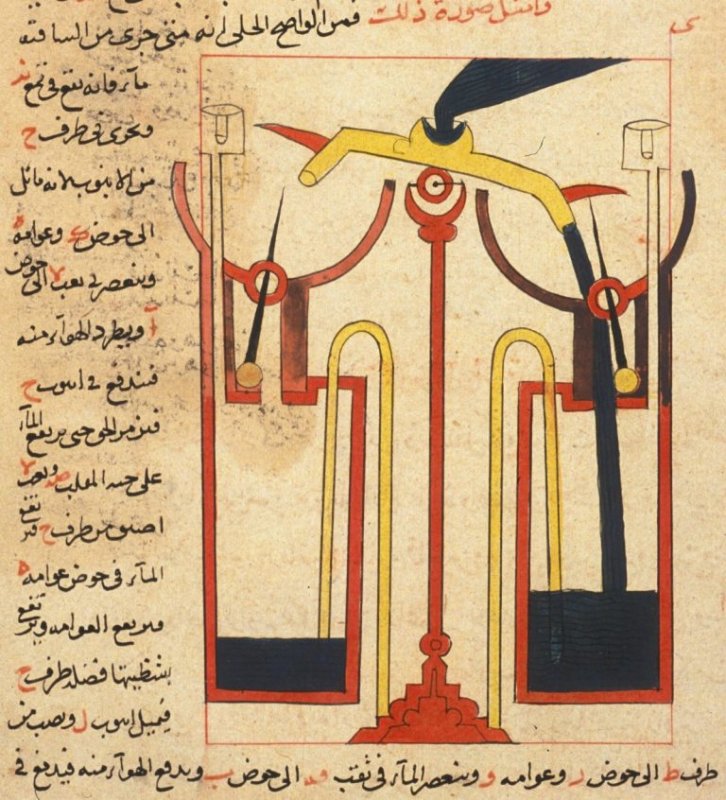 وامثل صورة ذلك فمن الواضح الجلى انه متى جرى من الساقية
ى
ماء فانه يقع فى قمع
ويجرى الى طرف ح
من الانبوب لانه مائل
الى حوض وعوامه
وينعصر فى ثقب الى حوض
ويطرد الهواء منه
فيندفع فى انبوب ح
فيزمر الى حين يرتفع الماء
على
من طرف ح
الماء فى حوض عوامه ه
فترتفع العوامه وترفع
بشظيتها طرف ح
فيميل انبوب ل ويصب من
طرف ط الى حوض ر وعوامه و وينعصر الماء فى ثقب الى حوض ب ويدفع الهواء منه فيندفع فى